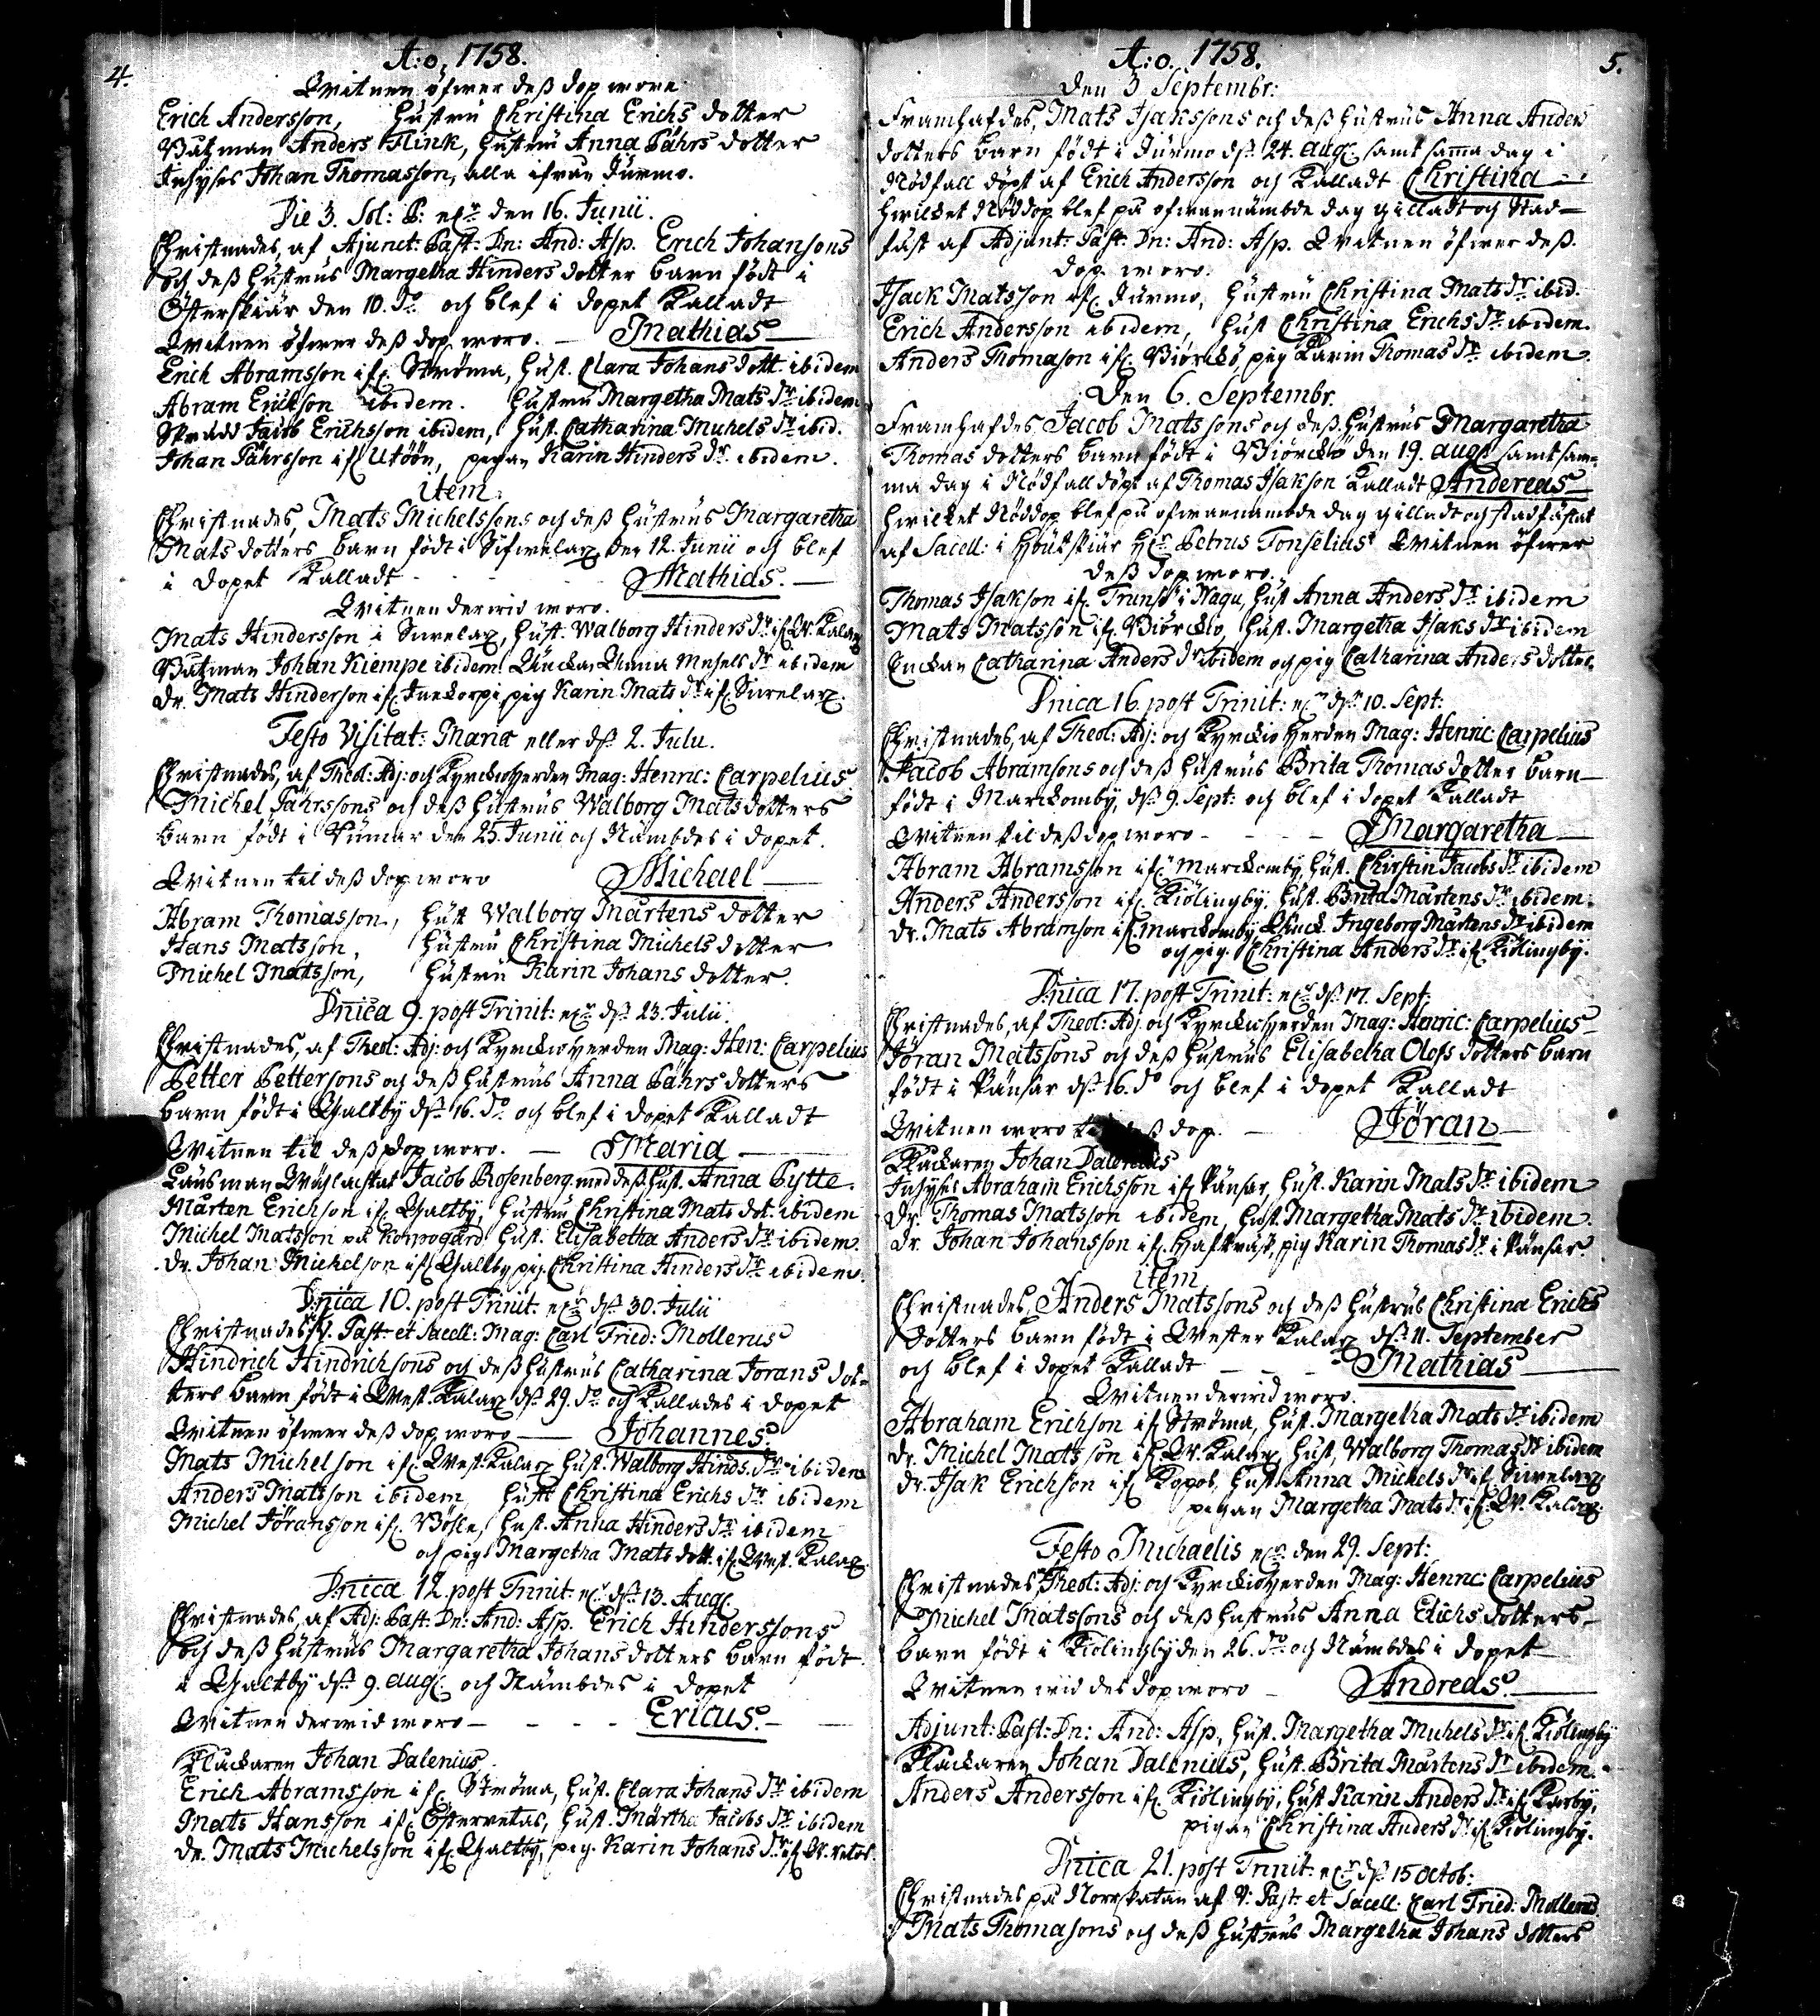 4.
A:o, 1758.
Witnen öfwer dess dop woro
Erich Andersson, hustru Christina Erichs dotter
Båtzman Anders Flink, hustru Anna Pährs dotter
Inhyses Johan Thomasson, alla ifrån Jurmo.
Die 3. Sol: P: eller den 16. Junii.
Christnades, af Ajunct: Past: Dn: And: Asp. Erich Johansons
och dess hustrus Margetha Hinders dotter barn födt i
Österskiär den 10. d:o och blef i dopet kalladt
Witnen öfwer dess dop woro. — Mathias
Erich Abramsson if. Ströma, hust. Clara Johans dott. ibidem
Abram Erichson ibidem. hustru Margetha Mats dr ibidem
Skrädd Jacob Erichsson ibidem, hust. Catharina Michels dr ibid.
Johan Pährsson if. Utöön, pigan Karin Hinders dr. ibidem.
item
Christnades, Mats Michelssons och dess hustrus Margaretha
Mats dotters barn födt i Sifwelax den 12. Junii och blef
i dopet kalladt - - - Mathias. —
Witnen derwid woro.
Mats Hindersson i Siwelax, hust. Walborg Hinders dr if. W. Kalax
Båtzman Johan Kiempe ibidem. Änckan Anna Michels dr ibidem
dr. Mats Hinderson if. pig Karin Mats dr if. Siwelax.
Festo Visitat: Mariæ eller d. 2. Julii.
Christnades, af Theol: Adj: och Kyrckioherden Mag: Henric: Carpelius
Michel Pährssons och dess hustrus Walborg Mats dotters
barn födt i den 25. Junii och Nämbdes i dopet.
Witnen til dess dop woro Michael —
Abram Thomasson, hust Walborg Mårtens dotter
Hans Matsson, hustru Christina Michels dotter
Michel Matsson, hustru Karin Johans dotter.
Dnica 9. post Trinit: eller d. 23. Julii.
Christnades, af Theol: Adj: och Kyrckioherden Mag: Hen: Carpelius
Petter Pettersons och dess hustrus Anna Pährs dotters
barn födt i Galtby d. 16. d:o och blef i dopet kalladt
Witnen til dess dop woro. — Maria —
Länsman Jacob Rosenberg med dess hust. Anna Pytte.
Mårten Erichson if. Galtby, hustru Christina Mats dot. ibidem
Michel Matsson på Korpogård hust. Elisabetha Anders dr. ibidem.
dr. Johan Michelson if. Galtby pig. Christina Hinders dr. ibidem.
Dnica 10. post Trinit. eller d. 30. Julii
Christnades af V. Past: et Sacell: Mag: Carl Fried: Mollerus
Hindrich Hindrichsons och dess hustrus Catharina Jörans dot-
ters barn födt i West. Kalax d. 29. d:o och kallades i dopet
Witnen öfwer dess dop woro — Johannes.
Mats Michelson if. West. Kalax hust. Walborg Hinds. dr. ibidem
Anders Matsson ibidem, hust Christina Erichs dr ibidem
Michel Jöransson if. hust. Anna Hinders dr ibidem
och pig. Margetha Mats dott. if. West. Kalax.
Dnica 12. post Trinit: eller d. 13. Aug.
Christnades, af Adj: Past: Dn: And: Asp. Erich Hinderssons
och dess hustrus Margaretha Johans dotters barn födt
i Galtby d. 9. aug. och Nämbdes i dopet
Witnen derwid woro - - - - Ericus. —
Klåckaren Johan Dalenius,
Erich Abramsson if. Ströma, hust. Clara Johans dr ibidem
Mats Hansson if. Österretais, hust. Märtha Jacobs dr ibidem
dr. Mats Michelsson if. Galtby, pig. Karin Johans dr if.
5.
A:o. 1758.
Den 3 Septembr:
Framhafdes, Mats Isakssons och dess hustrus Anna Anders
dotters barn födt i Jurmo d. 24. aug. samt samma dag i
Nödfall döpt af Erich Andersson och kalladt Christina
hwilcket Nöddop blef på ofwannämbde dag gilladt och stad-
fäst af Adjunt: Past: Dn: And: Asp. Witnen öfwer dess.
dop woro.
Isack Matsson if. Jurmo, hustru Christina Mats dr. ibid.
Erich Andersson ibidem, hust Christina Erichs dr. ibidem.
Anders Thomason if. Biörckö, pig Karin Thomas dr. ibidem.
Den 6. Septembr.
Framhafdes Jacob Matssons och dess. hustrus Margaretha
Thomas dotters barn födt i Biörckö den 19. aug. samt sam-
ma dag i Nödfall döpt af Thomas Isakson kalladt Andereas
hwilcket Nöddop blef på ofwannämbde dag gilladt och stadfästat
af Sacell: i Houtskiär Hr. Petrus Tonselius. Witnen öfwer
dess dop woro.
Thomas Isakson if. Trunsö i Nagu, hust Anna Anders dr ibidem
Mats Matsson if. Biörckö, hust. Margetha Isaks dr ibidem
Enckan Catharina Anders dr ibidem och pig Catharina Anders dotter
Dnica 16. post Trinit: eller d. 10. Sept:
Christnades, af Theol: Adj: och Kyrckio herden Mag: Henric: Carpelius
Jacob Abramsons och dess hustrus Brita Thomas dotter barn
födt i Marckomby, d. 9. Sept: och blef i dopet kalladt
Witnen til dess dop woro - - - Margaretha
Abram Abramsson if. Marckomby, hust. Christin Jacobs dr ibidem
Anders Andersson if. Kiölingby. hust. Brita Mårtens dr. ibidem.
dr. Mats Abramson if. Marckomby Änck. Ingeborg Mårtens dr ibidem
och pig. Christina Anders dr. if. Kiölingby.
Dnica 17. post Trinit: eller d. 17. Sept.
Christnades, af Theol: Adj. och Kyrckioherden Mag: Henric: Carpelius
Jöran Matssons och dess hustrus Elisabetha Olofs dotters barn
födt i Pänsar d. 16. d:o och blef i dopet kalladt
Witnen woro dop. — Jöran —
Klåckaren Johan Dalenius
Inhyses Abraham Erichsson if. Pänsar, hust. Karin Mats dr ibidem
dr. Thomas Matsson ibidem, hust. Margetha Mats dr. ibidem.
dr. Johan Johansson if. pig Karin Thomas dr i Pänsar.
item
Christnades, Anders Matssons och dess hustrus Christina Erichs
dotters barn födt i Wester Kalax d. 11. September
och blef i dopet kalladt — - - Mathias
Witnen derwid woro.
Abraham Erichson if. Ströma, hust. Margetha Mats dr ibidem
dr. Michel Matsson if. W. Kalax, hust, Walborg Thomas dr ibidem
dr. Isak Erichson if. Kopos, hust. Anna Michels dr if. Siwelax
pigan Margetha Mats dr if. W. Kalax.
Festo Michaelis eller den 29. Sept:
Christnades, Theol: Adj: och Kyrckioherden Mag: Henric: Carpelius
Michel Matssons och dess hustrus Anna Erichs dotters
barn födt i Kiölingby den 26. d:o och Nämbdes i dopet
Witnen wid des dop woro - Andreas.
Adjunt: Past: Dn: And: Asp, hust. Margetha Michels dr if. Kiölingby
Klåckaren Johan Dalenius, hust. Brita Mårtens dr ibidem.
Anders Andersson if. Kiölingby, hust Karin Anders dr if. Karby,
pigan Christina Anders dr if. Kiölingby.
Dnica 21. post Trinit: eller d. 15 Octob:
Christnades på Norrskatan af V: Past: et Sacell: Carl Fried: Mollerus
Mats Thomasons och dess hustrus Margetha Johans dotters